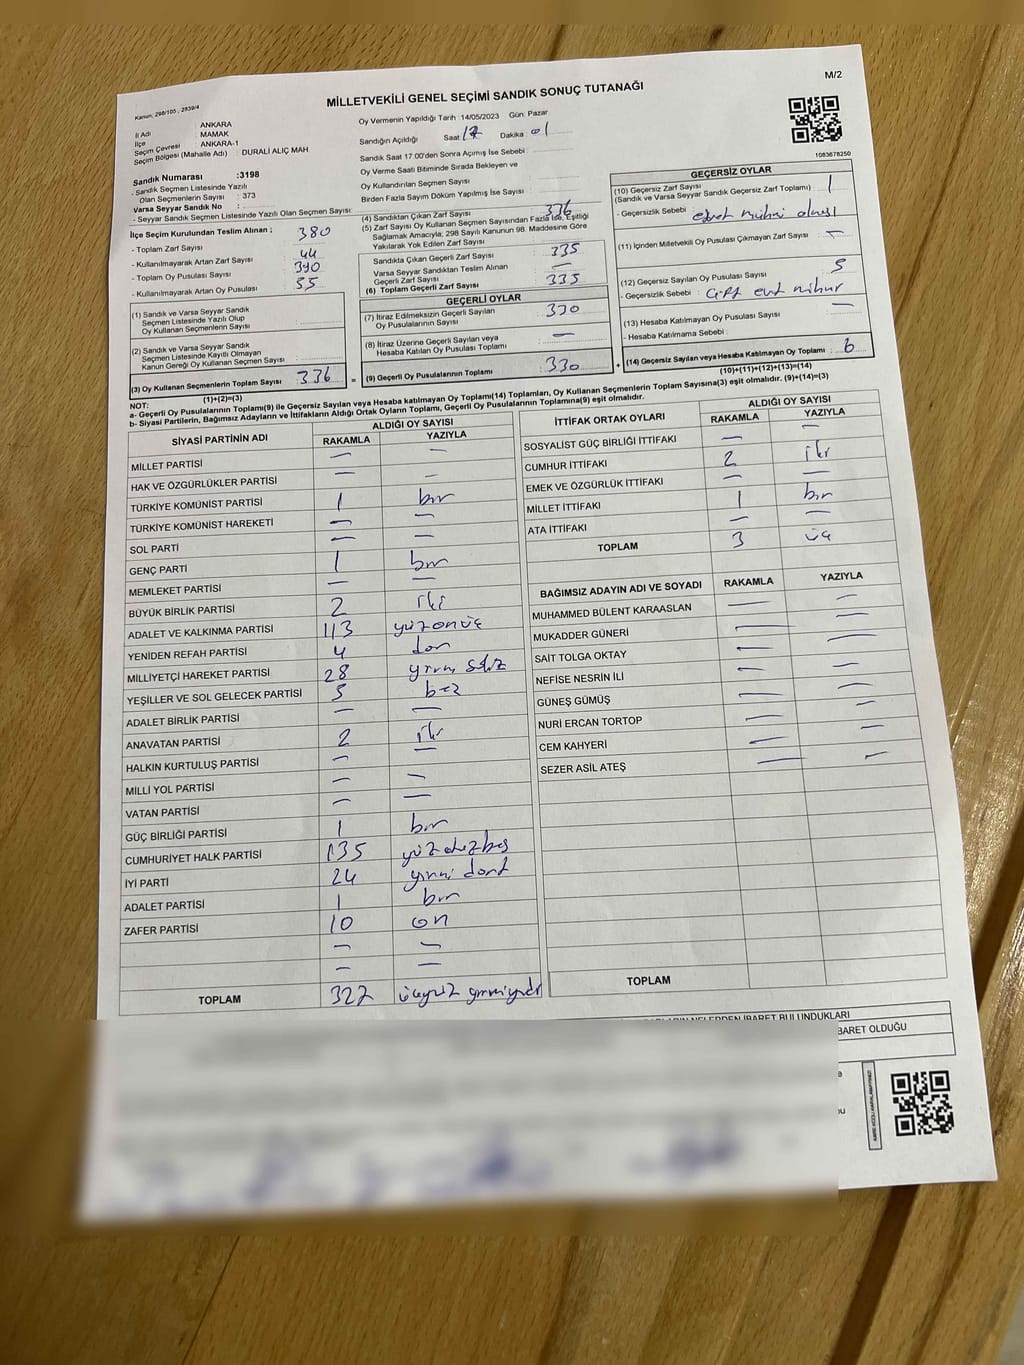 M/2
Kanun, 298/105 , 2839/4
MİLLETVEKİLİ GENEL SEÇİMİ SANDIK SONUÇ TUTANAĞI
İl Adı ANKARA
İlçe MAMAK
Seçim Çevresi ANKARA-1
Seçim Bölgesi (Mahalle Adı) : DURALİ ALIÇ MAH
Sandık Numarası :3198
- Sandık Seçmen Listesinde Yazılı
Olan Seçmenlerin Sayısı : 373
Varsa Seyyar Sandık No :
- Seyyar Sandık Seçmen Listesinde Yazılı Olan Seçmen Sayısı:
İlçe Seçim Kurulundan Teslim Alınan ;
- Toplam Zarf Sayısı : 380
- Kullanılmayarak Artan Zarf Sayısı : 44
- Toplam Oy Pusulası Sayısı : 390
- Kullanılmayarak Artan Oy Pusulası : 55
(1) Sandık ve Varsa Seyyar Sandık
Seçmen Listesinde Yazılı Olup
Oy Kullanan Seçmenlerin Sayısı :
(2) Sandık ve Varsa Seyyar Sandık
Seçmen Listesinde Kayıtlı Olmayan
Kanun Gereği Oy Kullanan Seçmen Sayısı :
(3) Oy Kullanan Seçmenlerin Toplam Sayısı : 336
(1)+(2)=(3)
Oy Vermenin Yapıldığı Tarih :14/05/2023 Gün: Pazar
Sandığın Açıldığı Saat : 17 Dakika : 01
Sandık Saat 17.00'den Sonra Açılmış İse Sebebi :
Oy Verme Saati Bitiminde Sırada Bekleyen ve
Oy Kullandırılan Seçmen Sayısı :
Birden Fazla Sayım Döküm Yapılmış İse Sayısı :
(4) Sandıktan Çıkan Zarf Sayısı : 336
(5) Zarf Sayısı Oy Kullanan Seçmen Sayısından Fazla İse, Eşitliği
Sağlamak Amacıyla; 298 Sayılı Kanunun 98. Maddesine Göre
Yakılarak Yok Edilen Zarf Sayısı :
Sandıkta Çıkan Geçerli Zarf Sayısı : 335
Varsa Seyyar Sandıktan Teslim Alınan
Geçerli Zarf Sayısı : —
(6) Toplam Geçerli Zarf Sayısı : 335
GEÇERLİ OYLAR
(7) İtiraz Edilmeksizin Geçerli Sayılan
Oy Pusulalarının Sayısı : 330
(8) İtiraz Üzerine Geçerli Sayılan veya
Hesaba Katılan Oy Pusulası Toplamı : —
= (9) Geçerli Oy Pusulalarının Toplamı : 330 +
1083678250
GEÇERSİZ OYLAR
(10) Geçersiz Zarf Sayısı : 1
(Sandık ve Varsa Seyyar Sandık Geçersiz Zarf Toplamı)
- Geçersizlik Sebebi : mührü olması
(11) İçinden Milletvekili Oy Pusulası Çıkmayan Zarf Sayısı : —
(12) Geçersiz Sayılan Oy Pusulası Sayısı : 5
- Geçersizlik Sebebi : Çift evt mühür
(13) Hesaba Katılmayan Oy Pusulası Sayısı : —
- Hesaba Katılmama Sebebi :
(14) Geçersiz Sayılan veya Hesaba Katılmayan Oy Toplamı : 6
(10)+(11)+(12)+(13)=(14)
NOT:
a- Geçerli Oy Pusulalarının Toplamı(9) ile Geçersiz Sayılan veya Hesaba katılmayan Oy Toplamı(14) Toplamları, Oy Kullanan Seçmenlerin Toplam Sayısına(3) eşit olmalıdır. (9)+(14)=(3)
b- Siyasi Partilerin, Bağımsız Adayların ve İttifakların Aldığı Ortak Oyların Toplamı, Geçerli Oy Pusulalarının Toplamına(9) eşit olmalıdır.
SİYASİ PARTİNİN ADI ALDIĞI OY SAYISI
RAKAMLA YAZIYLA
MİLLET PARTİSİ — —
HAK VE ÖZGÜRLÜKLER PARTİSİ — —
TÜRKİYE KOMÜNİST PARTİSİ 1 bir
TÜRKİYE KOMÜNİST HAREKETİ — —
SOL PARTİ — —
GENÇ PARTİ 1 bir
MEMLEKET PARTİSİ — —
BÜYÜK BİRLİK PARTİSİ 2 iki
ADALET VE KALKINMA PARTİSİ 113 yüzonüç
YENİDEN REFAH PARTİSİ 4 dört
MİLLİYETÇİ HAREKET PARTİSİ 28 yirmi sekiz
YEŞİLLER VE SOL GELECEK PARTİSİ 5 beş
ADALET BİRLİK PARTİSİ — —
ANAVATAN PARTİSİ 2 iki
HALKIN KURTULUŞ PARTİSİ — —
MİLLİ YOL PARTİSİ — —
VATAN PARTİSİ — —
GÜÇ BİRLİĞİ PARTİSİ 1 bir
CUMHURİYET HALK PARTİSİ 135 yüzotuzbeş
İYİ PARTİ 24 yirmi dört
ADALET PARTİSİ 1 bir
ZAFER PARTİSİ 10 on
— —
— —
TOPLAM 327 üçyüz yirmiyedi
İTTİFAK ORTAK OYLARI ALDIĞI OY SAYISI
RAKAMLA YAZIYLA
SOSYALİST GÜÇ BİRLİĞİ İTTİFAKI — —
CUMHUR İTTİFAKI 2 iki
EMEK VE ÖZGÜRLÜK İTTİFAKI — —
MİLLET İTTİFAKI 1 bir
ATA İTTİFAKI — —
TOPLAM 3 üç
BAĞIMSIZ ADAYIN ADI VE SOYADI RAKAMLA YAZIYLA
MUHAMMED BÜLENT KARAASLAN — —
MUKADDER GÜNERİ — —
SAİT TOLGA OKTAY — —
NEFİSE NESRİN İLİ — —
GÜNEŞ GÜMÜŞ — —
NURİ ERCAN TORTOP — —
CEM KAHYERİ — —
SEZER ASİL ATEŞ — —
TOPLAM
NELERDEN İBARET BULUNDUKLARI
BARET OLDUĞU